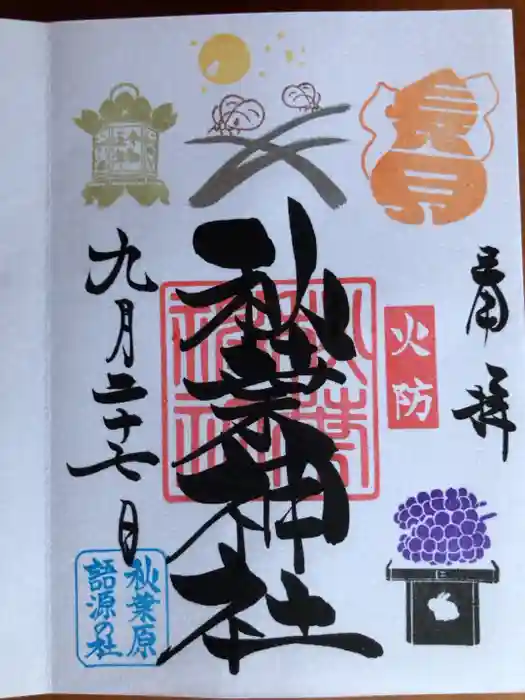 長月
奉拝
火防
秋葉神社
秋葉神社
令和
五年
九月二十七日
秋葉原
語源の社